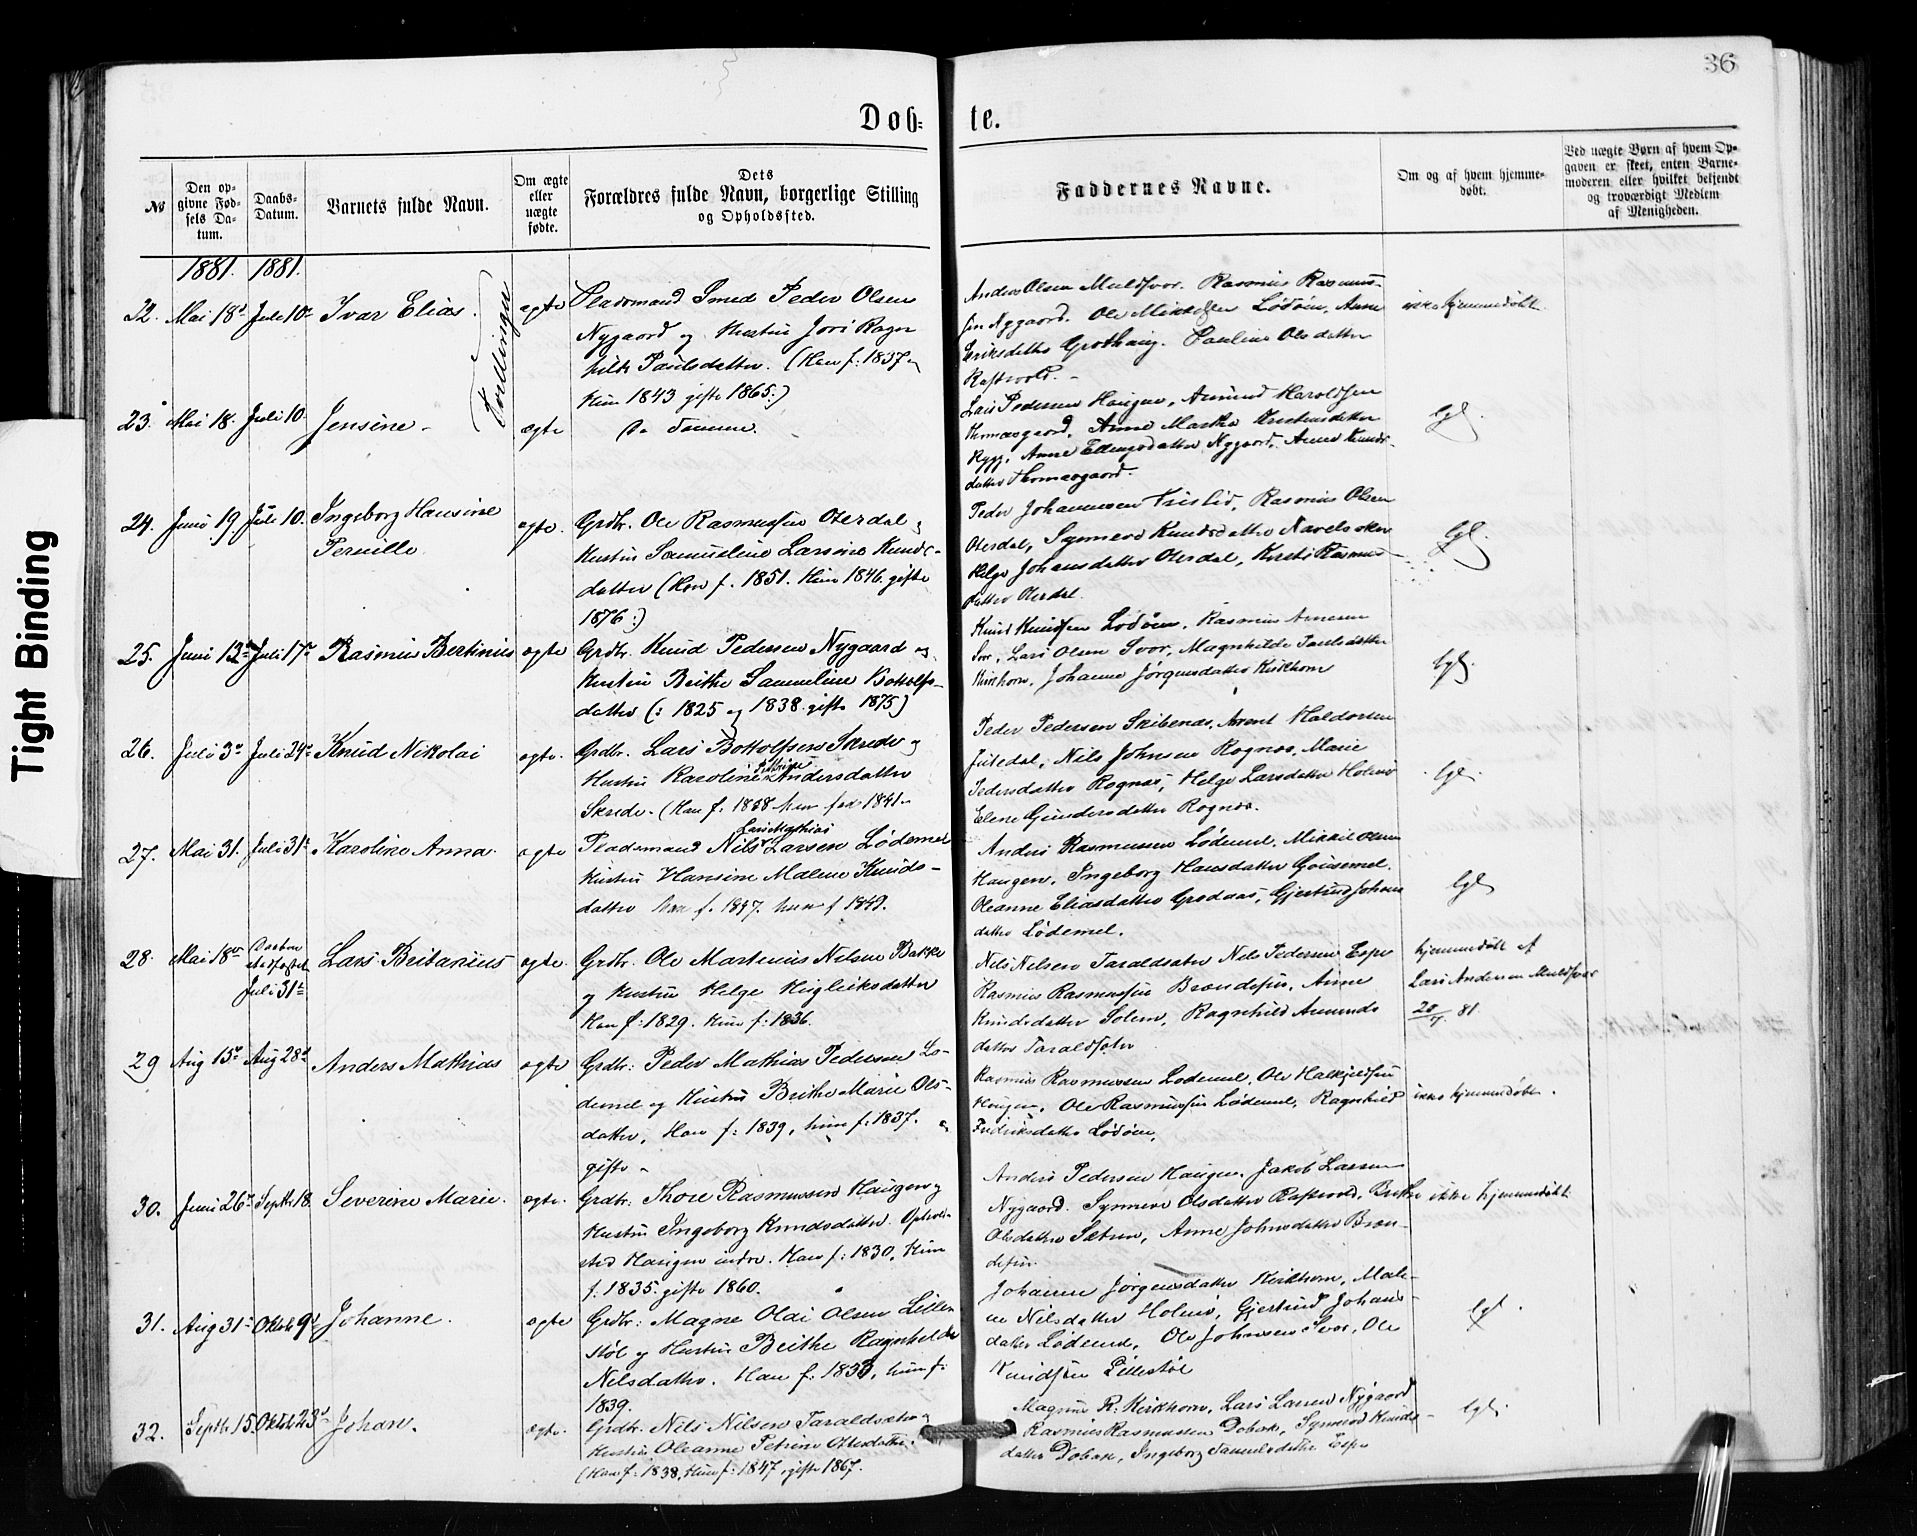 36
Døb-
te.
№
Den op-
givne Fød-
sels Da-
tum.
Daabs-
Datum.
Barnets fulde Navn.
Om ægte
eller
uægte
fødte.
Dets
Forældres fulde Navn, borgerlige Stilling
og Opholdssted.
Faddernes Navne.
Om og af hvem hjemme-
døbt.
Ved uægte Børn af hvem Op-
gaven er skeet, enten Barne-
moderen eller hvilket bekjendt
og troværdigt Medlem
af Menigheden.
Tight Binding
1881. 1881.
32. Mai 18d Juli 10de Ivar Elias. ægte Pladsmand Smed Peder Olsen
Nygaard og Hustru Jori Ragn
hilde Paulsdatter. (Han f. 1837 og
Hun 1843 gifte 1865:)
Tvillinger
Anders Olsen Muldsvor. Rasmus Rasmus-
sen Nygaard. Ole Mikkelsen Lødøen, Anne
Eriksdatter Grothaug. Pauline Olsdatter
Raftevold.
ikke hjemmedøbt
23. Mai 18. Juli 10. Jensine ægte Do Samme.
Lars Pedersen Haugen, Amund Haroldsen
Thomasgaard, Anne Marthe Kristensdatter
Rygg, Anne Ellingsdatter Nygaard, Anne Knuds-
datter Thomasgaard.
lgl.
24. Juni 19. Juli 10. Ingeborg Hansine
Pernille ægte. Grdbr. Ole Rasmussen Oterdal og
Hustru Samueline Larsine Knuds-
datter (Han f. 1851. Hun 1846. gifte
1876:)
Peder Johannessen Frislid, Rasmus Olsen
Oterdal, Synneve Knudsdatter Navelsaker
Helge Johansdatter Oterdal, Kirsti Rasmus
datter Oterdal.
lgl.
25. Juni 13de Juli 17de Rasmus Bertinius ægte Grdbr. Knud Pedersen Nygaard og
Hustru Brithe Samueline Bottolfs-
datter (: 1825 og 1838. gifte 1875)
Knud Knudsen Lødøen, Rasmus Arnesen
Svor, Lars Olsen Svor, Magnhilde Paulsdatter
Kirkhorn, Johanne Jørgensdatter Kirkhorn
lgl.
26. Juli 3de Juli 24de Knud Nikolai ægte. Grdbr. Lars Bottolfsen Skrede og
Hustru Karoline Andersdatter
Skrede. (Han f. 1838 hun født 1841.
Peder Pedersen Skibenes, Arent Haldorsen
Jutedal, Nils Johnsen Rognes, Marie
Pedersdatter Rognes, Helge Larsdatter Holmø
Elene Gundersdatter Rognes.
lgl.
27. Mai 31. Juli 31te Karoline Anna. ægte Pladsmand Nils Lars Mathias Larsen Lødemel
Hustru Hansine Malene Knuds-
datter han f. 1847. hun f 1849.
Anders Rasmussen Lødemel, Mikkel Olsen
Haugen, Ingeborg Hansdatter Gausemel.
Oleanne Eliasdatter Grodaas, Gjertrud Johans
datter Lødemel.
lgl
28. Mai 18de Daaben
stadfæstet
Juli 31te Lars Britanius ægte. Grdbr. Ole Martinus Nilsen Bakke
og Hustru Helge Hugleiksdatter
Han f: 1829. Hun f: 1836.
Nils Nilsen Taraldsæter Nils Pedersen Espe
Rasmus Rasmussen Brændefur, Anne
Knudsdatter Solem, Ragnhild Amunds
datter Taraldsæter
hjemmedøbt af
Lars Andersen Muldsvor
20/7 81
29 Aug 15de Aug 28de Anders Mathias ægte Grdbr: Peder Mathias Pedersen Lø-
demel og Hustru Brithe Marie Ols-
datter, Han f: 1839, hun f: 1837. og
gifte
Rasmus Rasmussen Lødemel, Ole Halkjeldsen
Haugen, Ole Rasmussen Lødemel, Ragnhild
Fredriksdatter Lødøen,
ikke hjemmedøbt.
30. Juni 26de Septbr 18. Severine Marie. ægte. Grdbr: Thore Rasmussen Haugen og
Hustru Ingeborg Knudsdatter. Ophold-
sted Haugen indre. Han f: 1830, Hun
f. 1835. gifte 1860.
Anders Pedersen Haugen, Jakob Larsen
Nygaard. Synneve Olsdatter Raftevold, Brithe
Olsdatter Sætren, Anne Johnsdatter Bræn-
defur.
ikke hjemmedøbt.
31. Aug 31te Oktob 9de Johanne. ægte Grdbr: Magne Olai Olsen Lille
støl og Hustru Brithe Ragnhilde
Nilsdatter. Han f. 1833, hun f:
1839.
Johanne Jørgensdatter Kirkhorn, Male-
ne Nilsdatter Holmø, Gjertrud Johans-
datter Lødemel, Ole Johnsen Svor, Ole
Knudsen Lillestøl
lgl.
32. Septbr 15. Oktob 23de Johan. ægte. Grdbr. Nils Nilsen Taraldsæter og
Hustru Oleanne Petrine Olsdatter.
(Han f: 1838, Hun f: 1847, gifte 1867.
Magnus R. Kirkhorn, Lars Larsen Nygaard
Rasmus Rasmussen Dobak, Synneve Knuds-
datter Dobak, Ingeborg Samuelsdatter Espe
lgl.